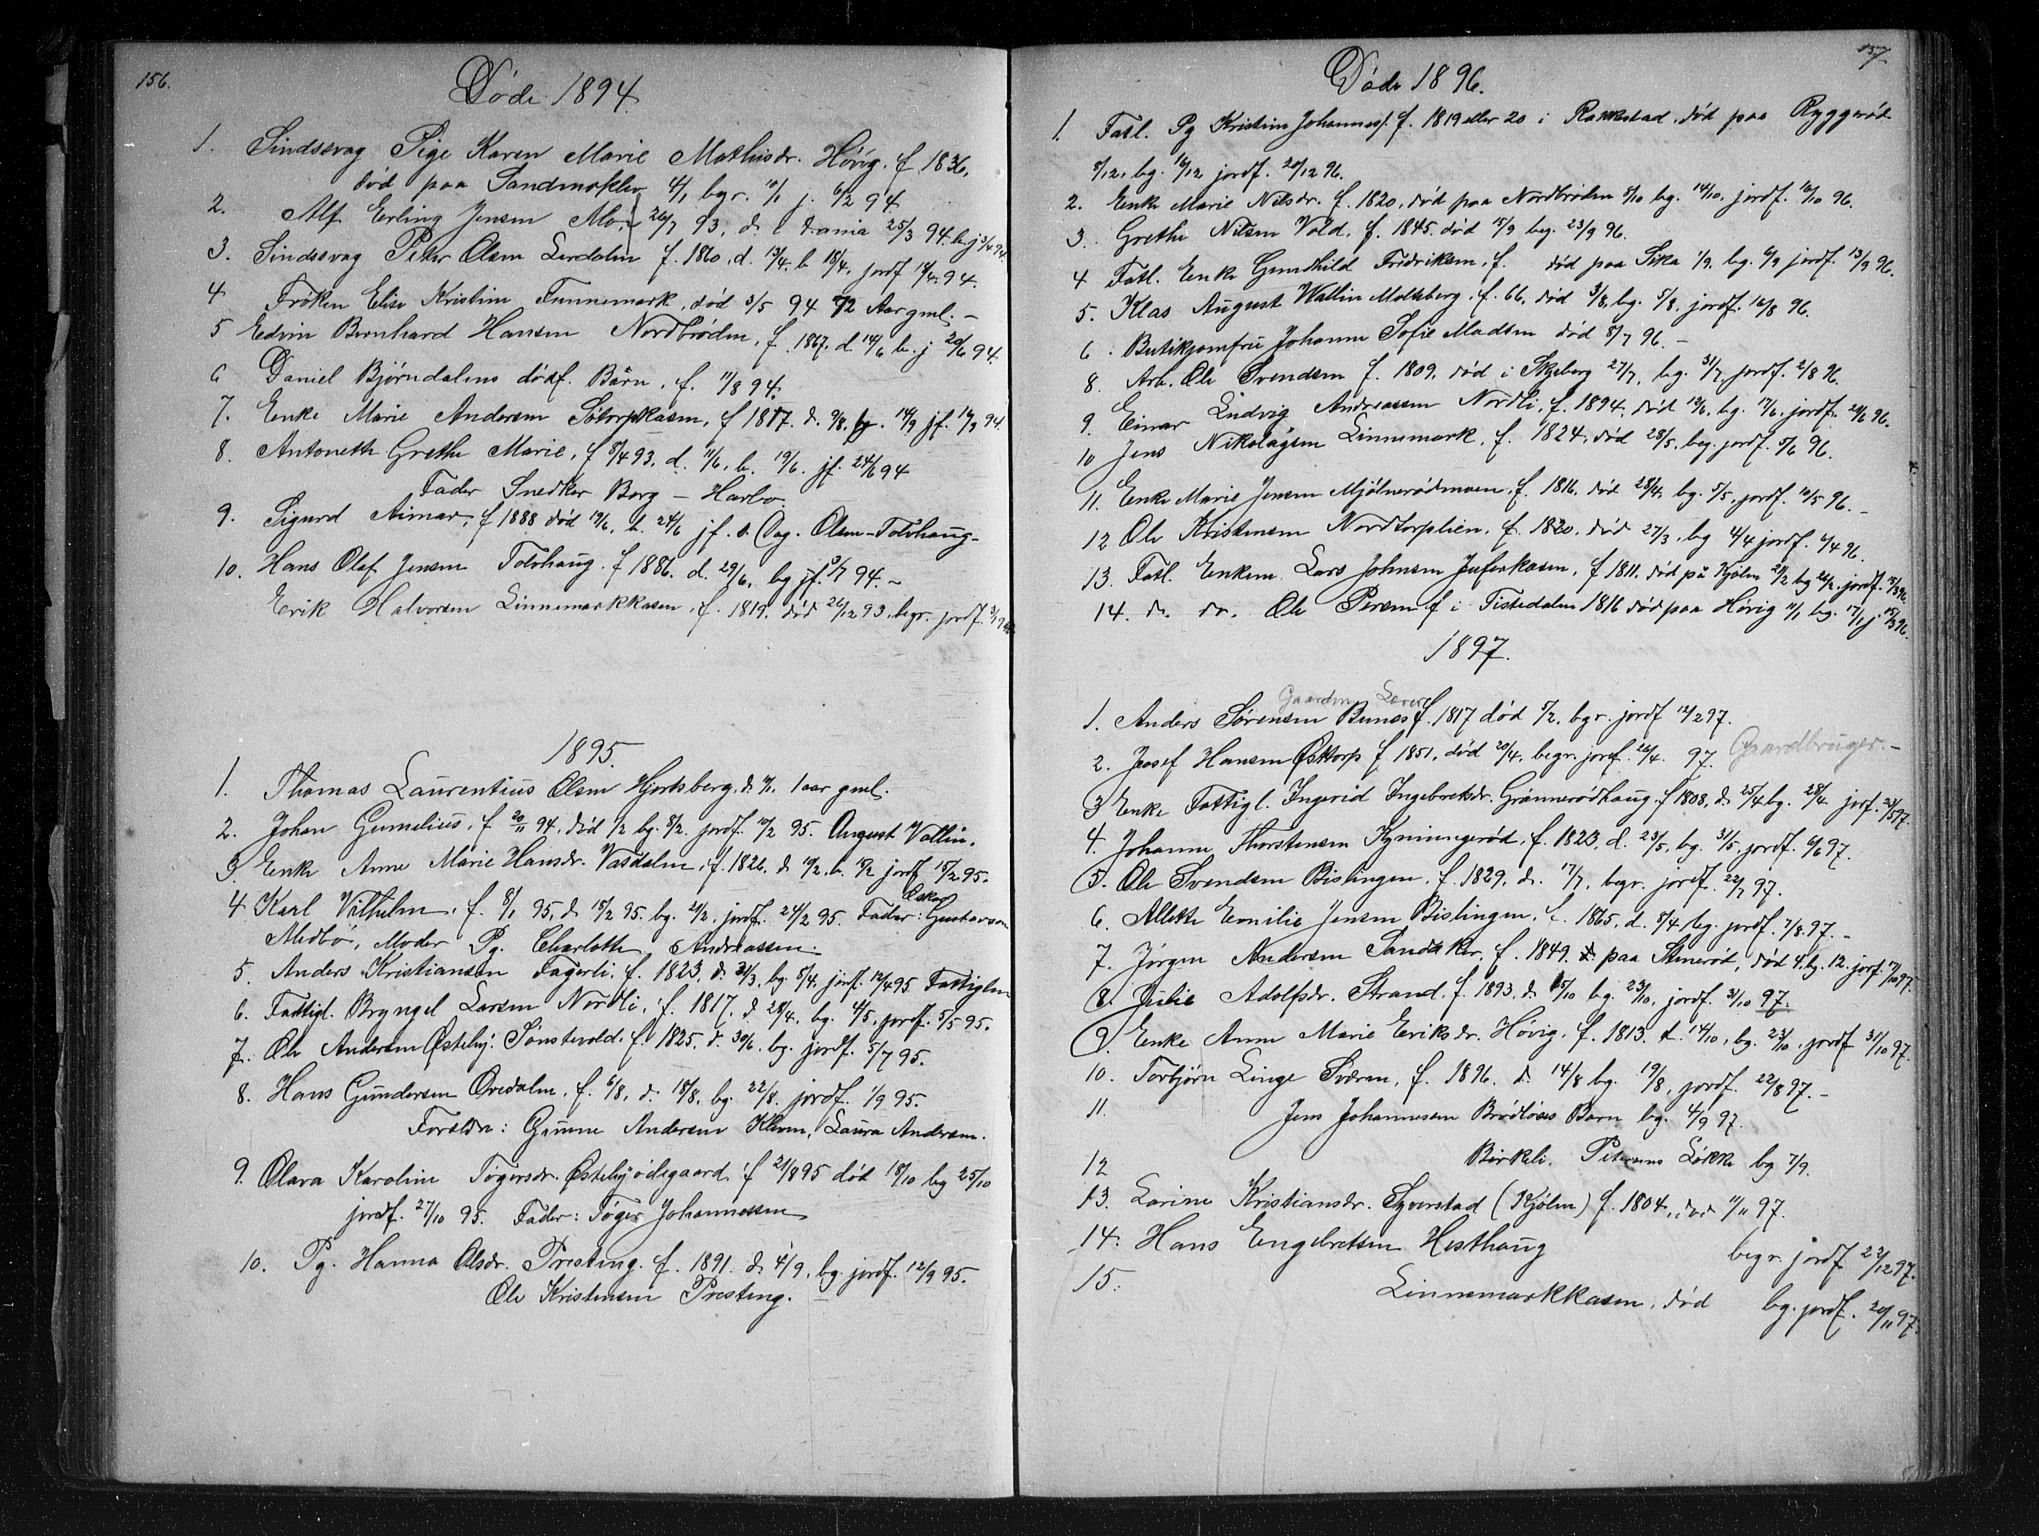 156.
Døde 1894
1. Sindssvag Pige Karen Marie Mathisdr. Høvig. f. 1836,
død paa Sandmoklev 4/1, bgr. 10/1 j. 6/2 94
2. Alf Erling Jensen Mo, 26/7 93, d. i 25/3 94. b. j 3/4 94.
3. Sindssvag Peter Olsen Lerdalen f. 1860, d. 13/4. b. 18/4, jordf 14/4. 94.
4 Frøken Elise Kristine Funnemark, død 3/5 94 72 Aar gml. –
5 Edvin Bernhard Hansen Nordbrøden, f. 1867. d. 14/6 b. j 20/6 94.
6 Daniel Bjørndalens dødf. Barn, f. 11/8 94.
7. Enke Marie Andersen Sætorpkasen, f 1817. d. 9/8. by. 14/9 jf. 14/9 94.
8. Antoneth Grethe Marie, f 8/4 93, d. 11/6, b. 19/6. jf. 24/6 94
Fader Snedker Berg – Harbo
9. Sigurd Aimar, f 1888 død 19/6, b. 24/6 jf. s. Dag. Olsen – Tolvhaug –
10. Hans Olaf Jensen Tolvhaug. f 1886. d. 29/6, bg jf. 3/7 94. –
Erik Halvorsen Linnemarkkasen, f. 1819. død 26/12 93, begr. jordf.
1895.
1. Thomas Laurentius Olsen Hjortsberg, d. 1 aar gml.
2. Johan Gumelius, f 20/11 94, død 1/2 bg. 8/2. jordf. 10/2 95. August Vallin.
3. Enke Anne Marie Hansdr. Vasdalen, f. 1826. d 10/2. b. 15/2 jordf 15/2 95.
4 Karl Vilhelm, f. 8/1 95, d 15/2 95. bg. 21/2, jordf. 24/2 95 Fader: Oskar Gustavson
Medbø, Moder Pg. Charlotte Andreassen.
5. Anders Kristiansen Fagerli, f. 1823, d. 31/3, bg. 5/4, jordf. 12/4 95 Fattiglem
6. Fattigl. Bryngel Larsen Nordli, f. 1817. d 28/4, bg. 4/5, jordf. 5/5 95.
7. Ole Andersen Østeby. Sønstevold. f. 1825. d. 30/6. bg. jordf. 5/7 95.
8. Hans Gundersen Ovedalen, f. 6/8, d. 18/8, bg. 22/8. jordf. 1/9 95.
Forældre: Gunne Andersen Kleven, Laura Andersen.
9. Olava Karoline Tøgersdr. Østebyødegaard, f 21/8 95 død 18/10 bg 25/10
jordf. 27/10 95. Fader: Tøger Johannessen
10. Pg. Hanna Olsdr. Presteng. f. 1891. d. 4/9, bg. jordf. 12/9 95.
Ole Kristensen Presteng.
157.
Døde 1896.
1. Fattl. Pg Kristine Johannesd. f. 1819 eller 20 i Rakkestad, død paa Ryggerød
8/12, bg. 16/12 jordf. 20/12 96.
2. Enke Marie Nilsdr. f. 1820, død paa Nordbrøden 8/10 bg. 14/10. jordf. 16/10 96.
3. Grethe Nilsen Vold. f. 1845. død 15/9 beg. 23/9 96.
4 Fattl. Enke Gundhild Fredriksen, f. død paa Sika 1/9. bg. 6/9 jordf. 13/9 96.
5. Klas August Wallin Moltzberg, f. 66, død 3/8, bg. 5/8, jordf. 16/8 96.
6. Butikjomfru Johanne Sofie Madsen død 8/7 96. –
8. Arb. Ole Svendsen f. 1809, død i Skjeberg 27/7, bg. 31/7, jordf. 2/8 96.
9. Einar Ludvig Andreassen Nordli, f. 1894, død 12/6, bg. 17/6, jordf. 20/6 96.
10 Jens Nikolaysen Linnemark, f. 1824, død 28/5, beg. jordf. 5/6 96.
11. Enke Marie Jensen Mjølnerødmoen, f. 1816. død 28/4, bg. 5/5, jordf. 10/5 96. –
12 Ole Kristensen Nordtorplien, f. 1820. død 27/3, bg 4/4 jordf. 4/4 96.
13. Fattl. Enkem. Lars Johnsen Juferkasen, f 1811. død på Kjølen 21/2 bg 26/2, jordf. 15/3 96.
14. do. do. Ole Persen f i Tistedalen 1816 død paa Høvig 11/1 bg. 17/1 j. 15/3 96.
1897.
Gaardm. Lærer
1. Anders Sørensen Bunes f. 1817 død 5/2. bgr. jordf 12/2 97.
2. Josef Hansen Østtorp f 1851. død 20/4, begr. jordf. 26/4. 97. Gaardbruger. –
3 Enke Fattigl. Ingerid Ingebretsdr. Grønnerødhaug. f 1808, d 25/4 bg. 28/4 jorf. 23/5 97.
4. Johanne Thorstensen Kynningsrød, f. 1823, d. 23/5, bg. 31/5, jordf. 6/6 97.
5. Ole Svendsen Bislingen, f. 1829, d. 17/7, begr. jordf. 22/7 97.
6. Allette Emilie Jensen Bislingen, f. 1865, d. 5/4 bg. jordf. 7/8. 97. –
7. Jørgen Andersen Sandaker, f. 1849. d paa Stenerød, død 4, bg. 12. jorf. 17/10 97.
8. Julie Adolfsdr. Strand. f. 1893, d. 15/10 bg. 23/10, jordf. 31/10 97.
9. Enke Anne Marie Eriksdr. Høvig, f. 1813. d. 14/10, bg. 23/10, jordf 31/10 97.
10. Torbjørn Linge Sværen, f. 1896. d. 14/8 bg. 19/8, jordf. 22/8 97. –
11. Jens Johannesen Brødløses Barn bg. 4/9 97.
12 Birkeli. Petersens Løkke bg 7/9.
13. Larine Kristiansdr. Syverstad (Kjølen) f. 1804, død 11/11 97.
14. Hans Engebretsen Hesthaug begr. jordf 22/12 97.
15. Linnemarkkasen, død bg. jordf. 20/11 97.